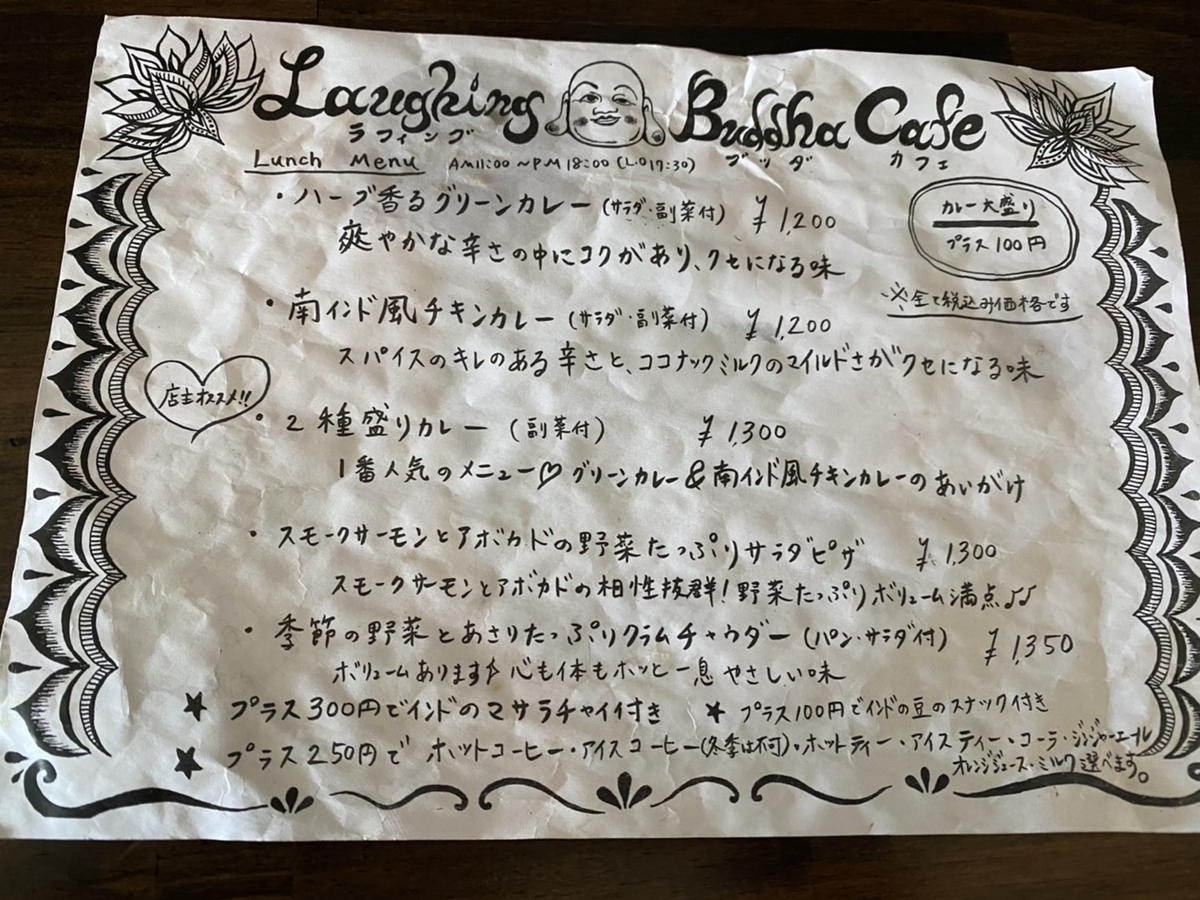 Laughing Buddha Cafe
ラフィング ブッダ カフェ
Lunch Menu AM11:00～PM18:00 (L.O17:30)
・ハーブ香るグリーンカレー (サラダ・副菜付) ¥1,200
爽やかな辛さの中にコクがあり、クセになる味
カレー大盛り
プラス100円
※全て税込み価格です
・南インド風チキンカレー (サラダ・副菜付) ¥1,200
スパイスのキレのある辛さと、ココナックミルクのマイルドさがクセになる味
店主オススメ!!
・2種盛りカレー (副菜付) ¥1,300
1番人気のメニュー♡グリーンカレー&南インド風チキンカレーのあいがけ
・スモークサーモンとアボカドの野菜たっぷりサラダピザ ¥1,300
スモークサーモンとアボカドの相性抜群!野菜たっぷりボリューム満点♪♪
・季節の野菜とあさりたっぷりクラムチャウダー (パン・サラダ付) ¥1,350
ボリュームあります♪心も体もホッと一息やさしい味
★ プラス300円でインドのマサラチャイ付き ★ プラス100円でインドの豆のスナック付き
★ プラス250円で ホットコーヒー・アイスコーヒー(冬季は不可)・ホットティー・アイスティー・コーラ・ジンジャーエール
オレンジジュース・ミルク選べます。